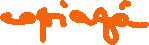 copiagá